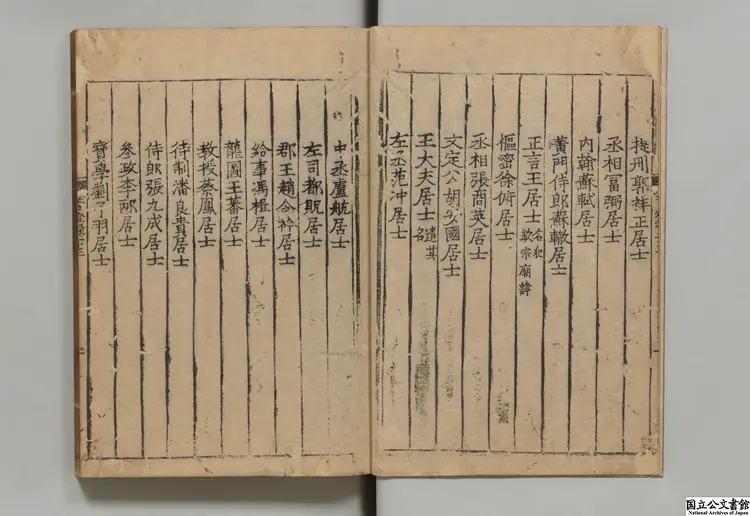 提刑郭祥正居士
丞相富弼居士
內翰蘇軾居士
黃門侍郎蘇轍居士
正言王居士 名犯欽宗廟諱
樞密徐俯居士
丞相張商英居士
文定公胡安國居士
王大夫居士 遺其名
左丞范冲居士
中丞盧航居士
左司都貺居士
郡王趙令衿居士
給事馮楫居士
龍圖王蕃居士
教授蔡鳳居士
待制潘良貴居士
侍郎張九成居士
參政李邴居士
寶學劉子羽居士
国立公文書館
National Archives of Japan